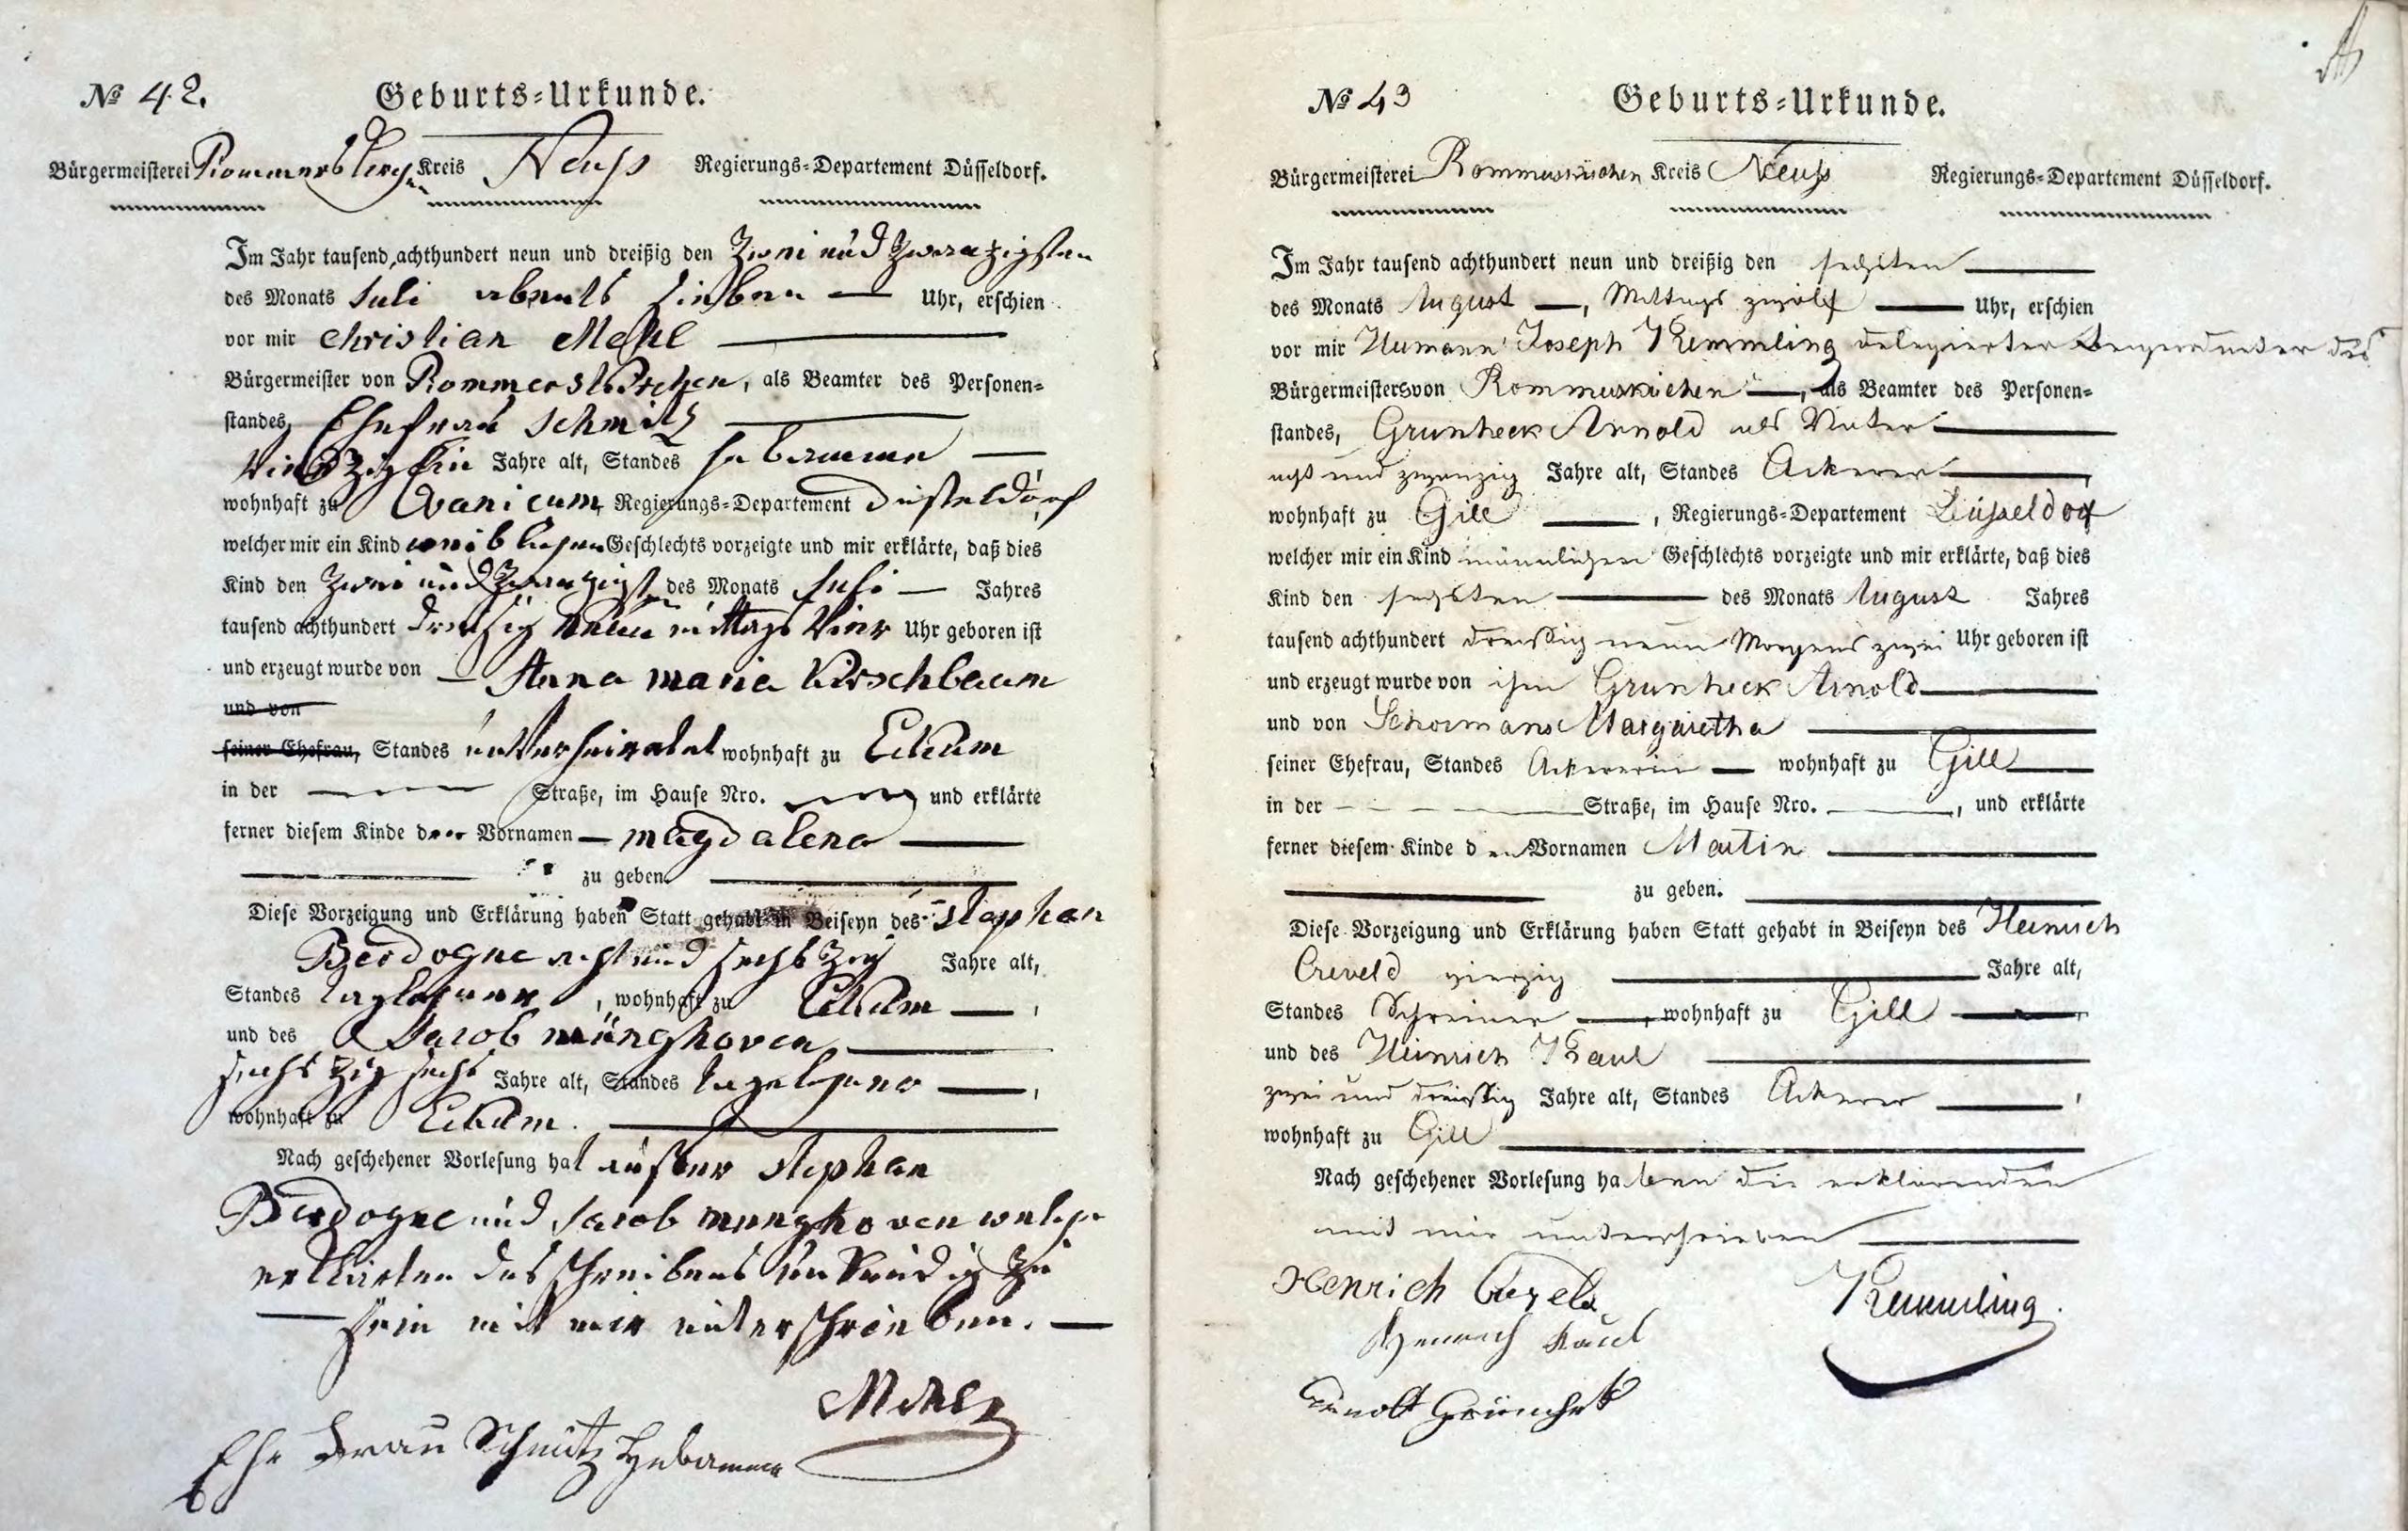 № 42.
Geburts-Urkunde.
Bürgermeisterei Rommerskirchen Kreis Neuss Regierungs-Departement Düsseldorf.
Im Jahr tausend achthundert neun und dreißig den Zwei und Zwanzigsten
des Monats Juli abends sieben — Uhr, erschien
vor mir Christian Mehl
Bürgermeister von Rommerskirchen, als Beamter des Personen-
standes, Ehefrau Schmitz
Vierzig Jahre alt, Standes Hebamme
wohnhaft zu Evanicum, Regierungs-Departement Düsseldorf
welcher mir ein Kind weiblichen Geschlechts vorzeigte und mir erklärte, daß dies
Kind den Zwei und Zwanzigsten des Monats Juli — Jahres
tausend achthundert dreißig neun mittags Vier Uhr geboren ist
und erzeugt wurde von — Anna Maria Kirschbaum
und von
seiner Ehefrau, Standes unverheiratet wohnhaft zu Eckum
in der Straße, im Hause Nro. und erklärte
ferner diesem Kinde den Vornamen — Magdalena
zu geben.
Diese Vorzeigung und Erklärung haben Statt gehabt in Beiseyn des Stephan
Berdogne acht und sechszig Jahre alt,
Standes Taglohner, wohnhaft zu Eckum —,
und des Jacob Münghoven
sechszig sechs Jahre alt, Standes Tagelohner —,
wohnhaft zu Eckum.
Nach geschehener Vorlesung hat außer Stephan
Berdogne und Jacob Munghoven welche
erklärten des schreibens unkundig zu
sein mit mir unterschrieben. —
Mehl
Ehe Frau Schmitz Hebamme
№ 43
Geburts-Urkunde.
Bürgermeisterei Rommerskirchen Kreis Neuss Regierungs-Departement Düsseldorf.
Im Jahr tausend achthundert neun und dreißig den sechsten
des Monats August —, Mittags zwölf Uhr, erschien
vor mir Hermann Joseph Kemmling delegierter Beigeordneter des
Bürgermeisters von Rommerskirchen —, als Beamter des Personen-
standes, Grunheck Arnold als Vater
acht und zwanzig Jahre alt, Standes Ackerer
wohnhaft zu Gill, Regierungs-Departement Düsseldorf
welcher mir ein Kind männlichen Geschlechts vorzeigte und mir erklärte, daß dies
Kind den sechsten des Monats August Jahres
tausend achthundert dreissig neun Morgens zwei Uhr geboren ist
und erzeugt wurde von ihm Grunheck Arnold
und von Schormans Margaretha
seiner Ehefrau, Standes Ackererin — wohnhaft zu Gill
in der Straße, im Hause Nro., und erklärte
ferner diesem Kinde den Vornamen Martin
zu geben.
Diese Vorzeigung und Erklärung haben Statt gehabt in Beiseyn des Heinrich
Creveld vierzig Jahre alt,
Standes Schreiner, wohnhaft zu Gill
und des Heinrich Kaul
zwei und dreissig Jahre alt, Standes Ackerer,
wohnhaft zu Gill
Nach geschehener Vorlesung haben die erklärenden
mit mir unterschrieben
Henrich Creveld
Kemmling.
Henrich Kaul
Arnolt Grünhek